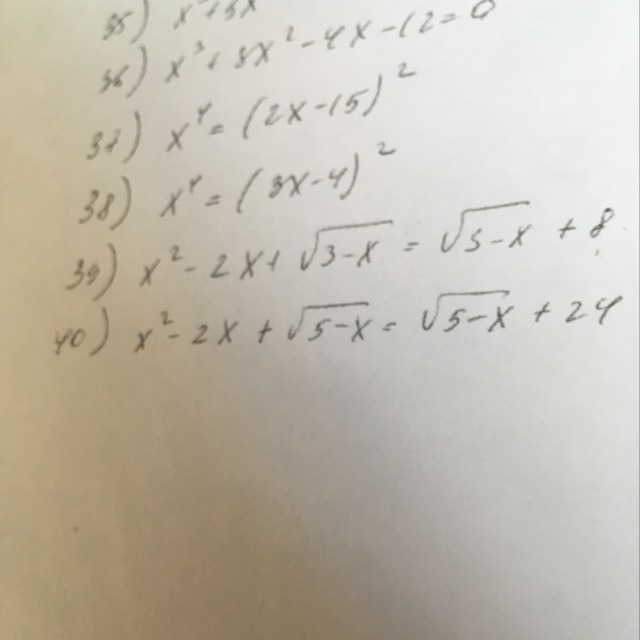 35) x
36) x³ + 3x² - 4x - 12 = 0
37) x⁴ = (2x - 15)²
38) x⁴ = (3x - 4)²
39) x² - 2x + √3-x = √3-x + 8
40) x² - 2x + √5-x = √5-x + 24